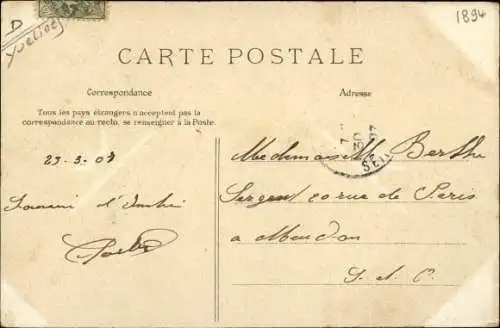 D
Yvelines
1894
CARTE POSTALE
Correspondance
Adresse
Tous les pays étrangers n'acceptent pas la
correspondance au recto, se renseigner à la Poste.
23-3-07
Mademoiselle Berthe
Sergent 20 rue de Paris
Souvenir d'
a Meudon
S. et O.